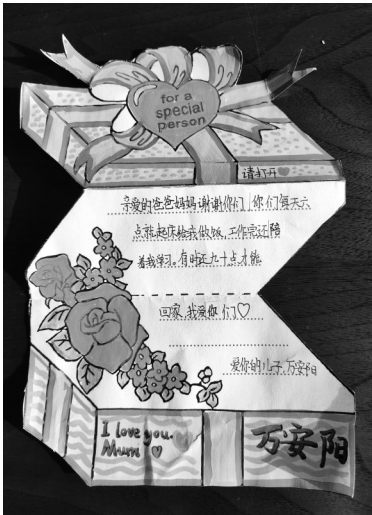 for a
special
person
请打开
亲爱的爸爸妈妈谢谢你们，你们每天六
点就起床给我做饭，工作完还陪
着我学习。有时还九十点才能
回家，我爱你们♡
爱你的儿子，万安阳
I love you.
Mum ♡
万安阳